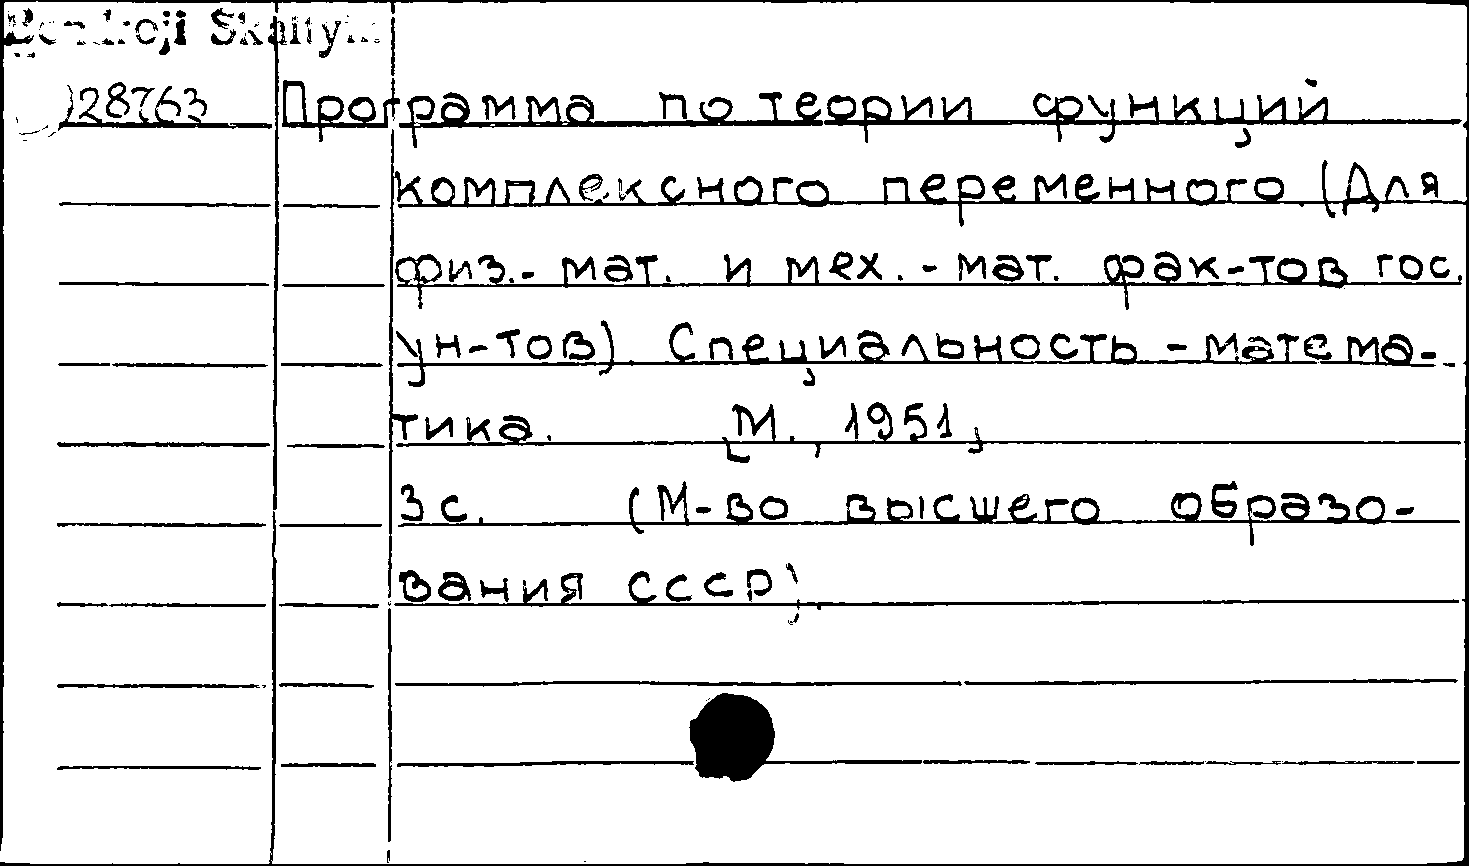 28763 Программа по теории функций
комплексного переменного. (Для
физ.-мат. и мех.-мат. фак-тов гос.
ун-тов). Специальность - матема-
тика. [М., 1951]
3 с. (М-во высшего образо-
вания СССР).